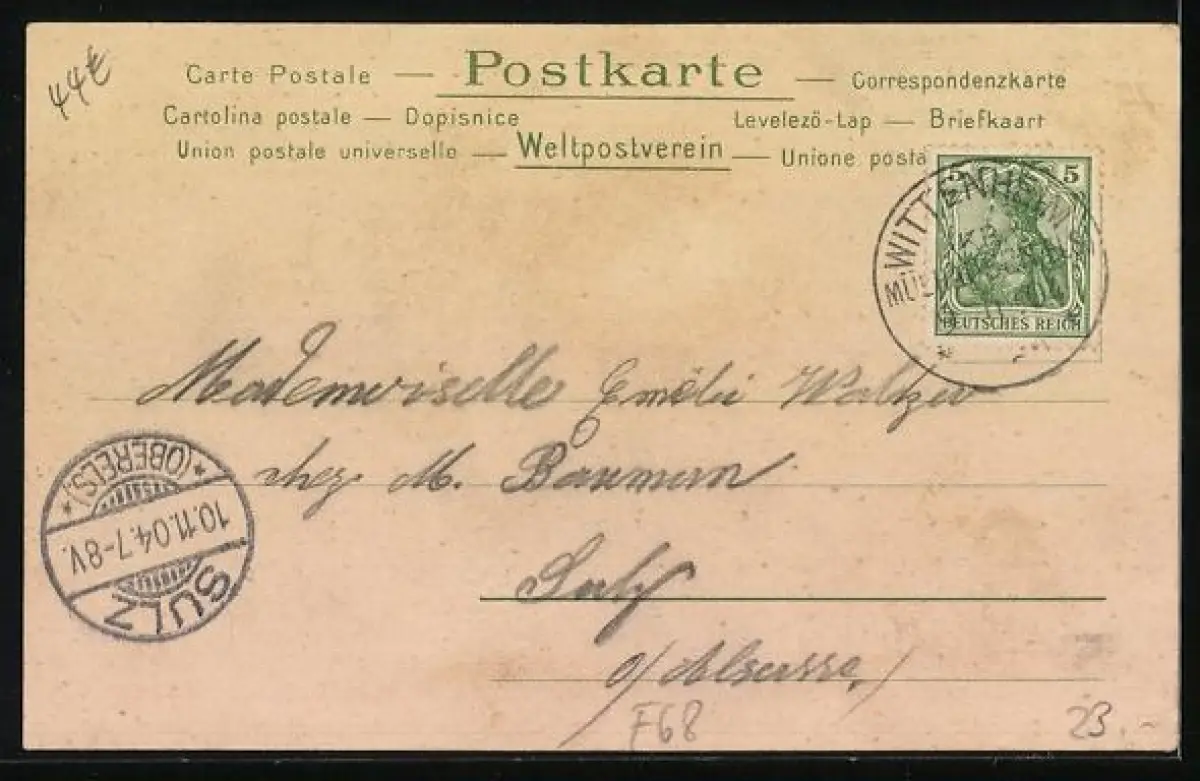 44€
Carte Postale — Postkarte — Correspondenzkarte
Cartolina postale — Dopisnice Levelezö-Lap — Briefkaart
Union postale universelle — Weltpostverein — Unione posta
5 5
DEUTSCHES REICH
WITTENHEIM
Mademoiselle Emélie
chez M. Baumann
Sulz
o/ Alsace
(OBERELS.)
10.11.04.7-8V.
SULZ
F68
23.-